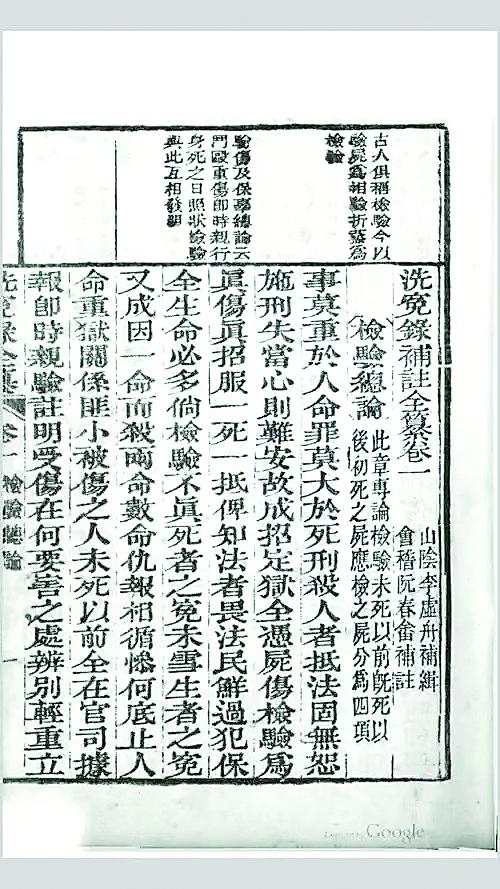 古人俱稱檢驗今以
驗屍爲相驗折蒸爲
檢驗
驗傷及保辜總論云
鬥毆重傷即時親行
身死之日照狀檢驗
與此互相發明
洗冤錄補註全纂卷一
山陰李虛舟補緝
會稽阮春畬補註
檢驗總論
此章專論檢驗未死以前既死以
後初死之屍應檢之屍分爲四項
事莫重於人命罪莫大於死刑殺人者抵法固無恕
施刑失當心則難安故成招定獄全憑屍傷檢驗爲
眞傷眞招服一死一抵俾知法者畏法民鮮過犯保
全生命必多倘檢驗不眞死者之冤未雪生者之冤
又成因一命而殺兩命數命仇報相循慘何底止人
命重獄關係匪小被傷之人未死以前全在官司據
報卽時親驗註明受傷在何要害之處辨別輕重立
洗冤錄全纂 卷一 檢驗總論 一
Google